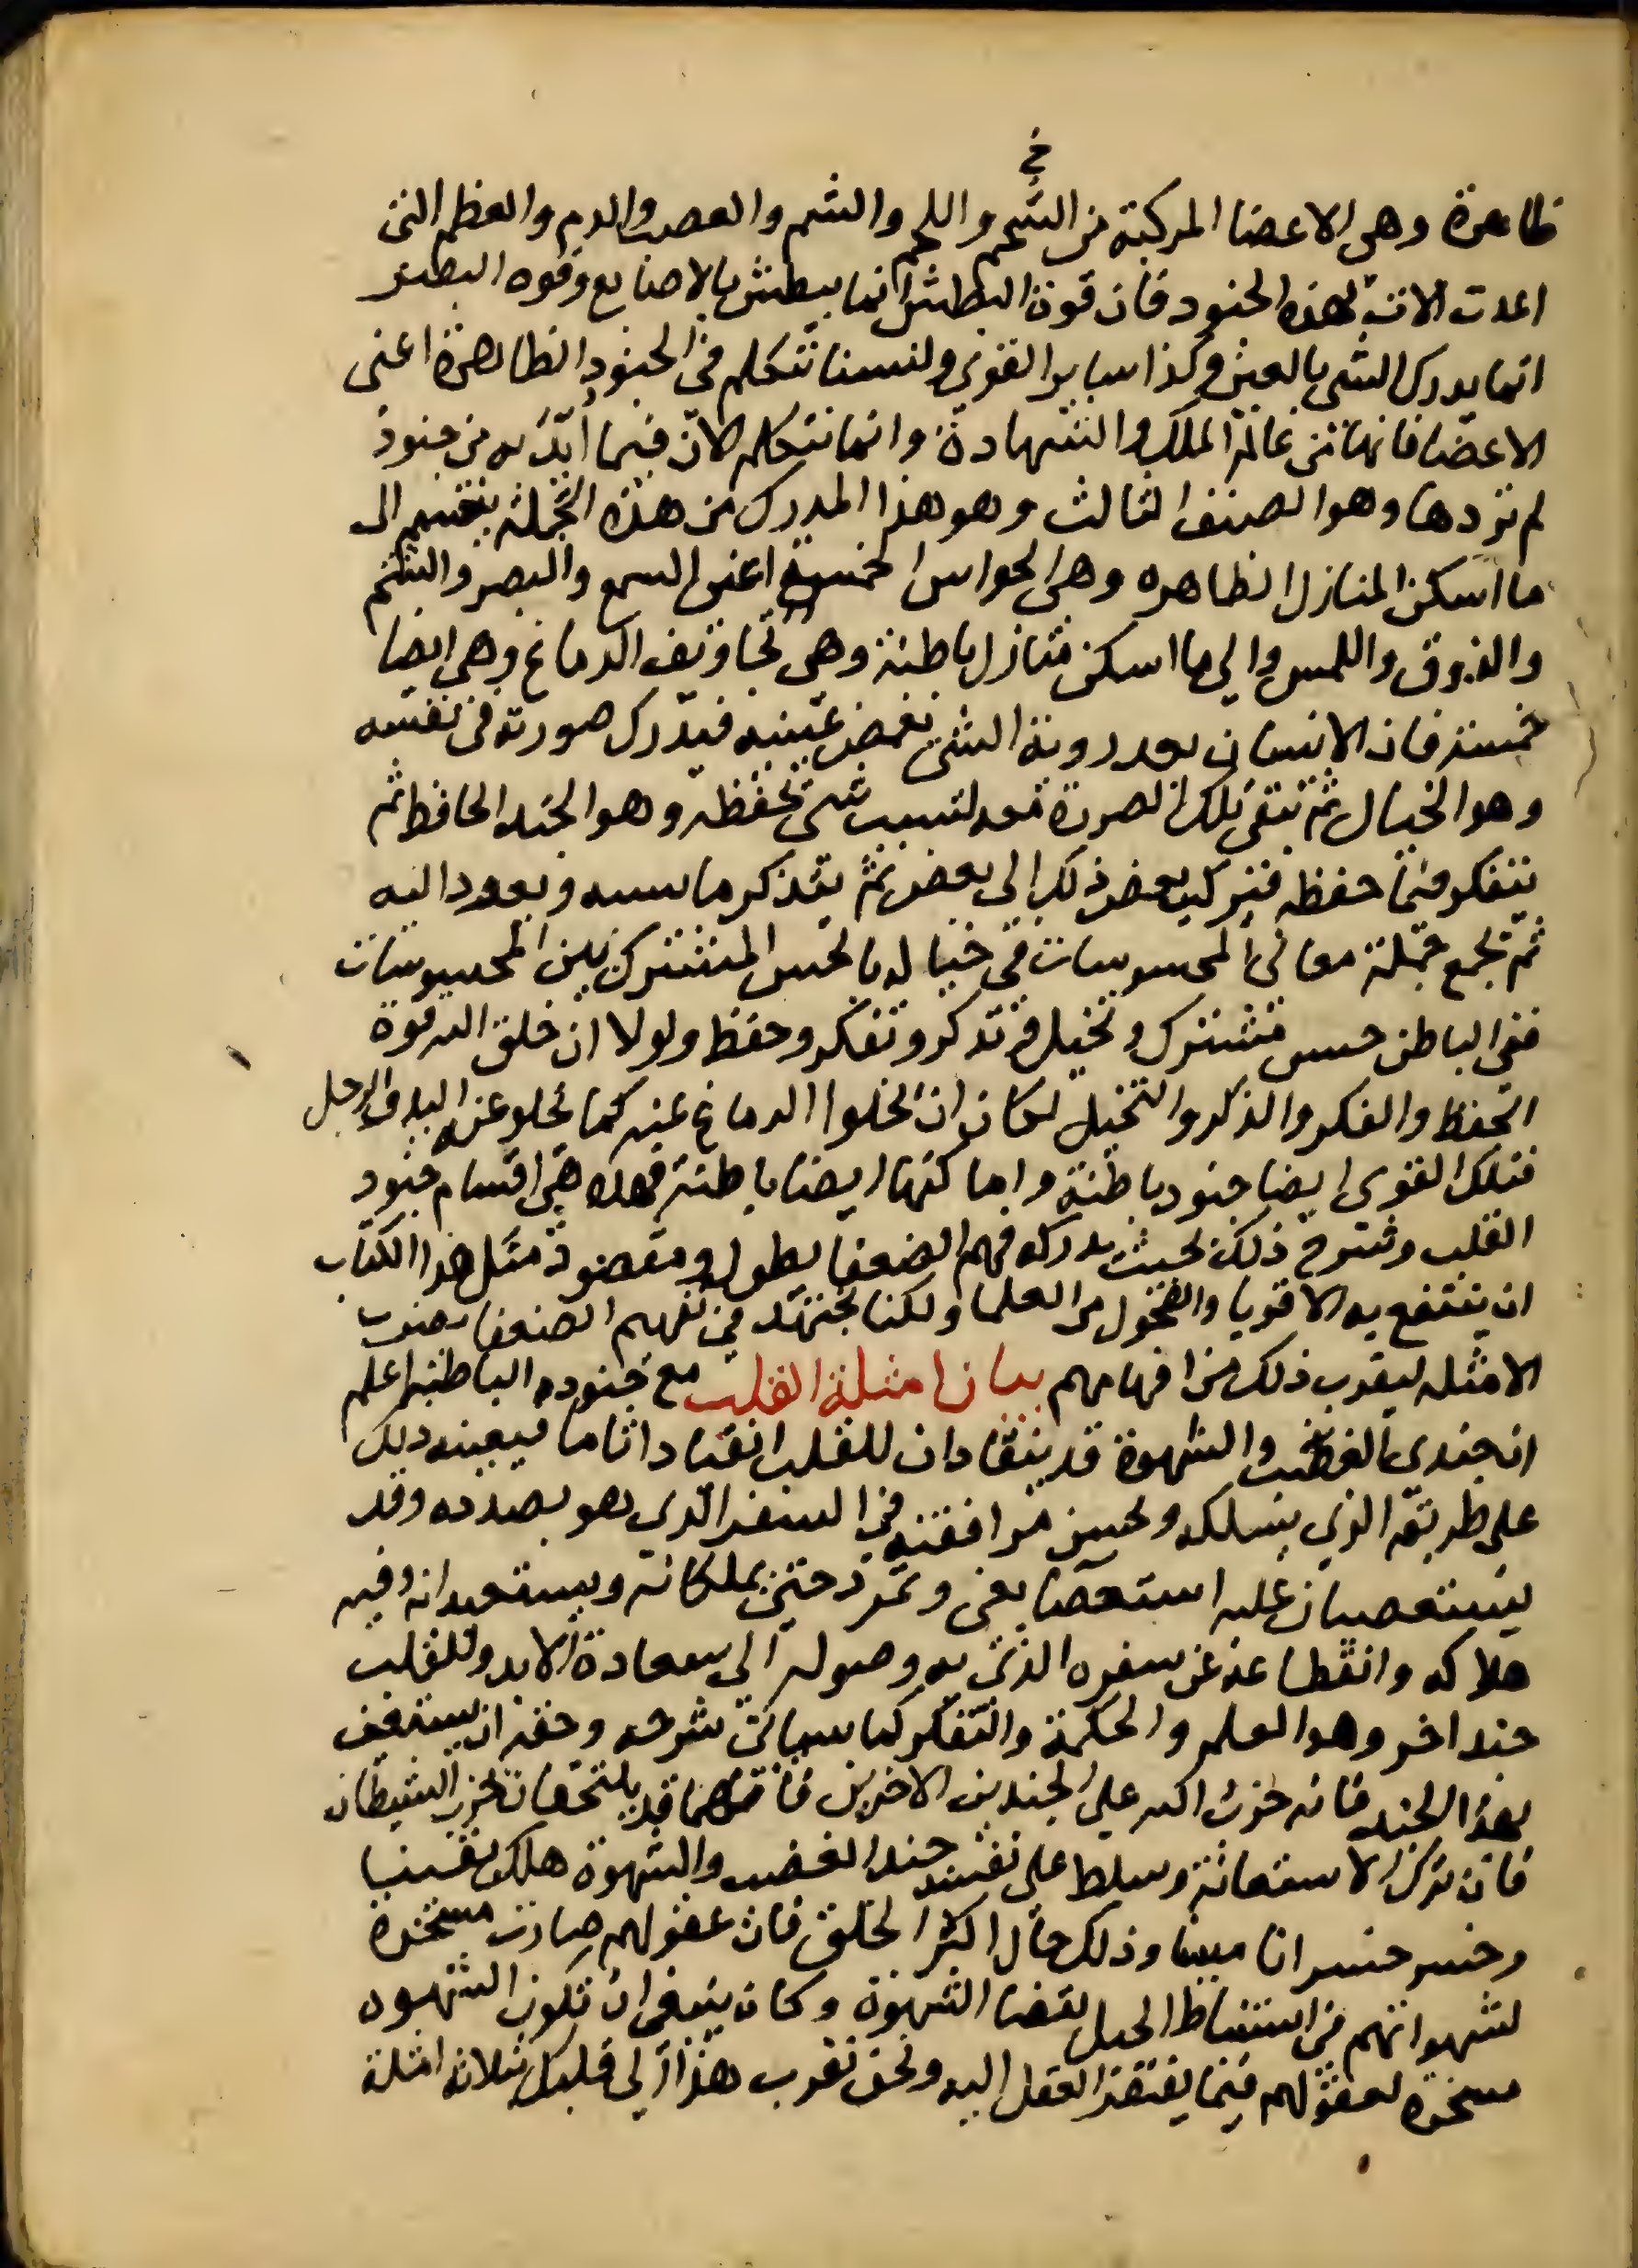 خ
ظاهرة وهى الاعضا المركبة من الشحم واللحم والشم والعصب والدم والعظم التى
اعدت الات لهذه الجنود فان قوة البطش انما يبطش بالاصابع وقوه البصر
انما يدرك الشى بالعين وكذا ساير القوى ولسنا نتكلم فى الجنود الظاهرة اعنى
الاعضا فانها من عالم الملك والشهادة وانما نتكلم الان فيما ايد به من جنود
لم تروها وهو الصنف الثالث وهو هذا المدرك من هذه الجملة ينقسم الى
ما اسكن المنازل الظاهره وهى الحواس الخمسة اعنى السمع والبصر والشم
والذوق واللمس والى ما اسكن منازل باطنة وهى تجاويف الدماغ وهى ايضا
خمسة فان الانسان بعد روية الشى يغمض عينيه فيدرك صورته فى نفسه
وهو الخيال ثم تبقى تلك الصورة معه لسبب شى يحفظه وهو الجند الحافظ ثم
يتفكر فيما حفظه فيركب بعض ذلك الى بعض ثم يتذكر ما نسيه ويعود اليه
ثم تجمع جملة معانى المحسوسات فى خياله بالحس المشترك بين المحسوسات
ففى الباطن حس مشترك وتخيل وتذكر وتفكر وحفظ ولولا ان خلق الله قوة
الحفظ والفكر والذكر والتخيل لكان ان يخلوا الدماغ عنه كما يخلو عنه اليد والرجل
فتلك القوى ايضا جنود باطنة واماكنها ايضا باطنة فهذه هى اقسام جنود
القلب وشرح ذلك بحيث يدركه فهم الضعفا يطول ومقصود مثل هذا الكتاب
ان ينتفع به الاقويا والفحول من العلما ولكنا نجتهد فى تفهيم الضعفا بضرب
الامثله ليقرب ذلك من افهامهم بيان امثلة القلب مع جنوده الباطنه اعلم
ان جندى الغضب والشهوة قد ينقادان للقلب انقيادا تاما فيعينه ذلك
على طريقه الذي يسلكه ويحسن مرافقته فى السفر الذى هو بصدده وقد
يستعصيان عليه استعصا بغى وتمرد حتى يملكانه ويستعبدانه وفيه
هلاكه وانقطاعه عن سفره الذى به وصوله الى سعادة الابد وللقلب
جند اخر وهو العلم والحكمة والتفكر كما سياتى شرحه وحقه ان يستعين
بهذا الجند فانه حزب الله على الجندين الاخرين فانهما قد يلتحقان بحزب الشيطان
فان ترك الاستعانة وسلط على نفسه جند الغضب والشهوة هلك يقينا
وخسر خسرانا مبينا وذلك حال اكثر الخلق فان عقولهم صارت مسخرة
لشهواتهم فى استنباط الحيل لقضا الشهوة وكان ينبغى ان تكون الشهوه
مسخره لعقولهم فيما يفتقر العقل اليه ونحن نقرب هذا الى قلبك بثلاثه امثلة